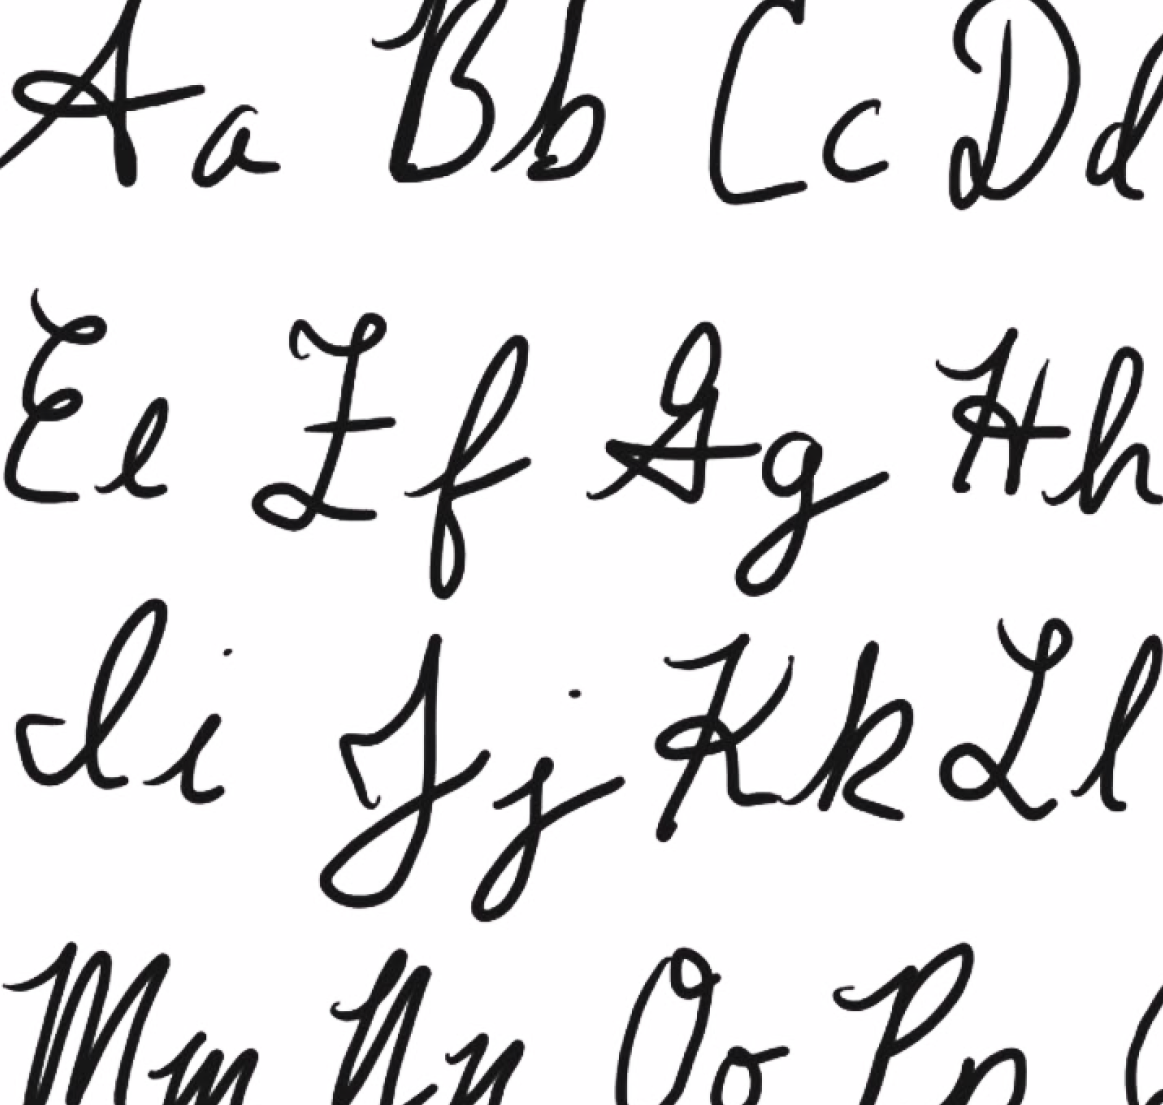 Aa Bb Cc Dd
Ee Ff Gg Hh
Ii Jj Kk Ll
Mm Nn Oo Pp